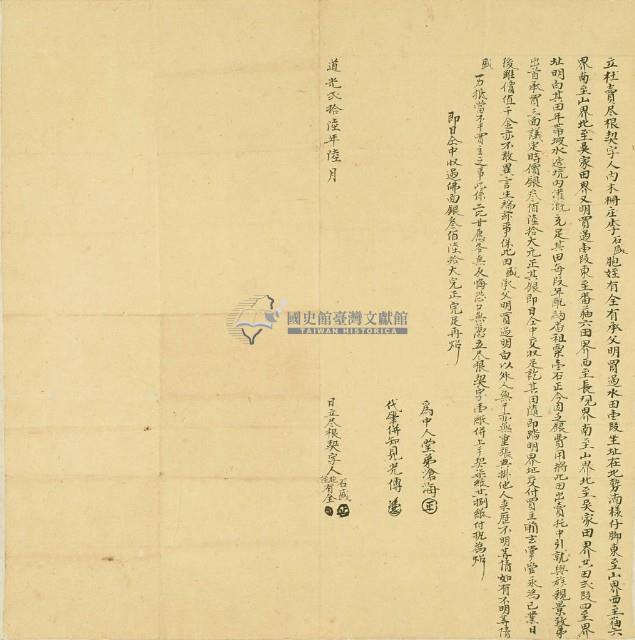 立杜賣尽根契字人内木柵庄李石盛胞姪有全有承父明買過水田壹段坐址在北勢湳樣仔脚東至山界西至蕃六
界南至山界北至吳家田界又明買過壹段東至蕃六田界西至長現界南至山界北至吳家田界共田弍段四至界
址明白其田年帶坡水透坑内灌溉充足其田每段年配納屯租粟壹石正今因乏銀費用將此田出賣托中引就與族親景致弟
出首承買三面議定時價銀叁佰陸拾大元正其銀即日仝中交收足訖其田隨即踏明界址交付買主前去掌管永為己業日
後雖價值千金亦不敢異言生端滋事保此田盛承父明買過明白以外人無干亦無重張典掛他人来歷不明等情如有不明等情
盛一力抵當不干買主之事此係二比甘愿各無反悔恐口無憑立尽根契字壹紙併上手契
即日仝中收過佛面銀叁佰陸拾大完正完足再炤
為中人堂弟滄海
代筆併知見光傳
道光弍拾陸年陸月
日立尽根契字人石盛胞姪有全
國史館臺灣文獻館
TAIWAN HISTORICA